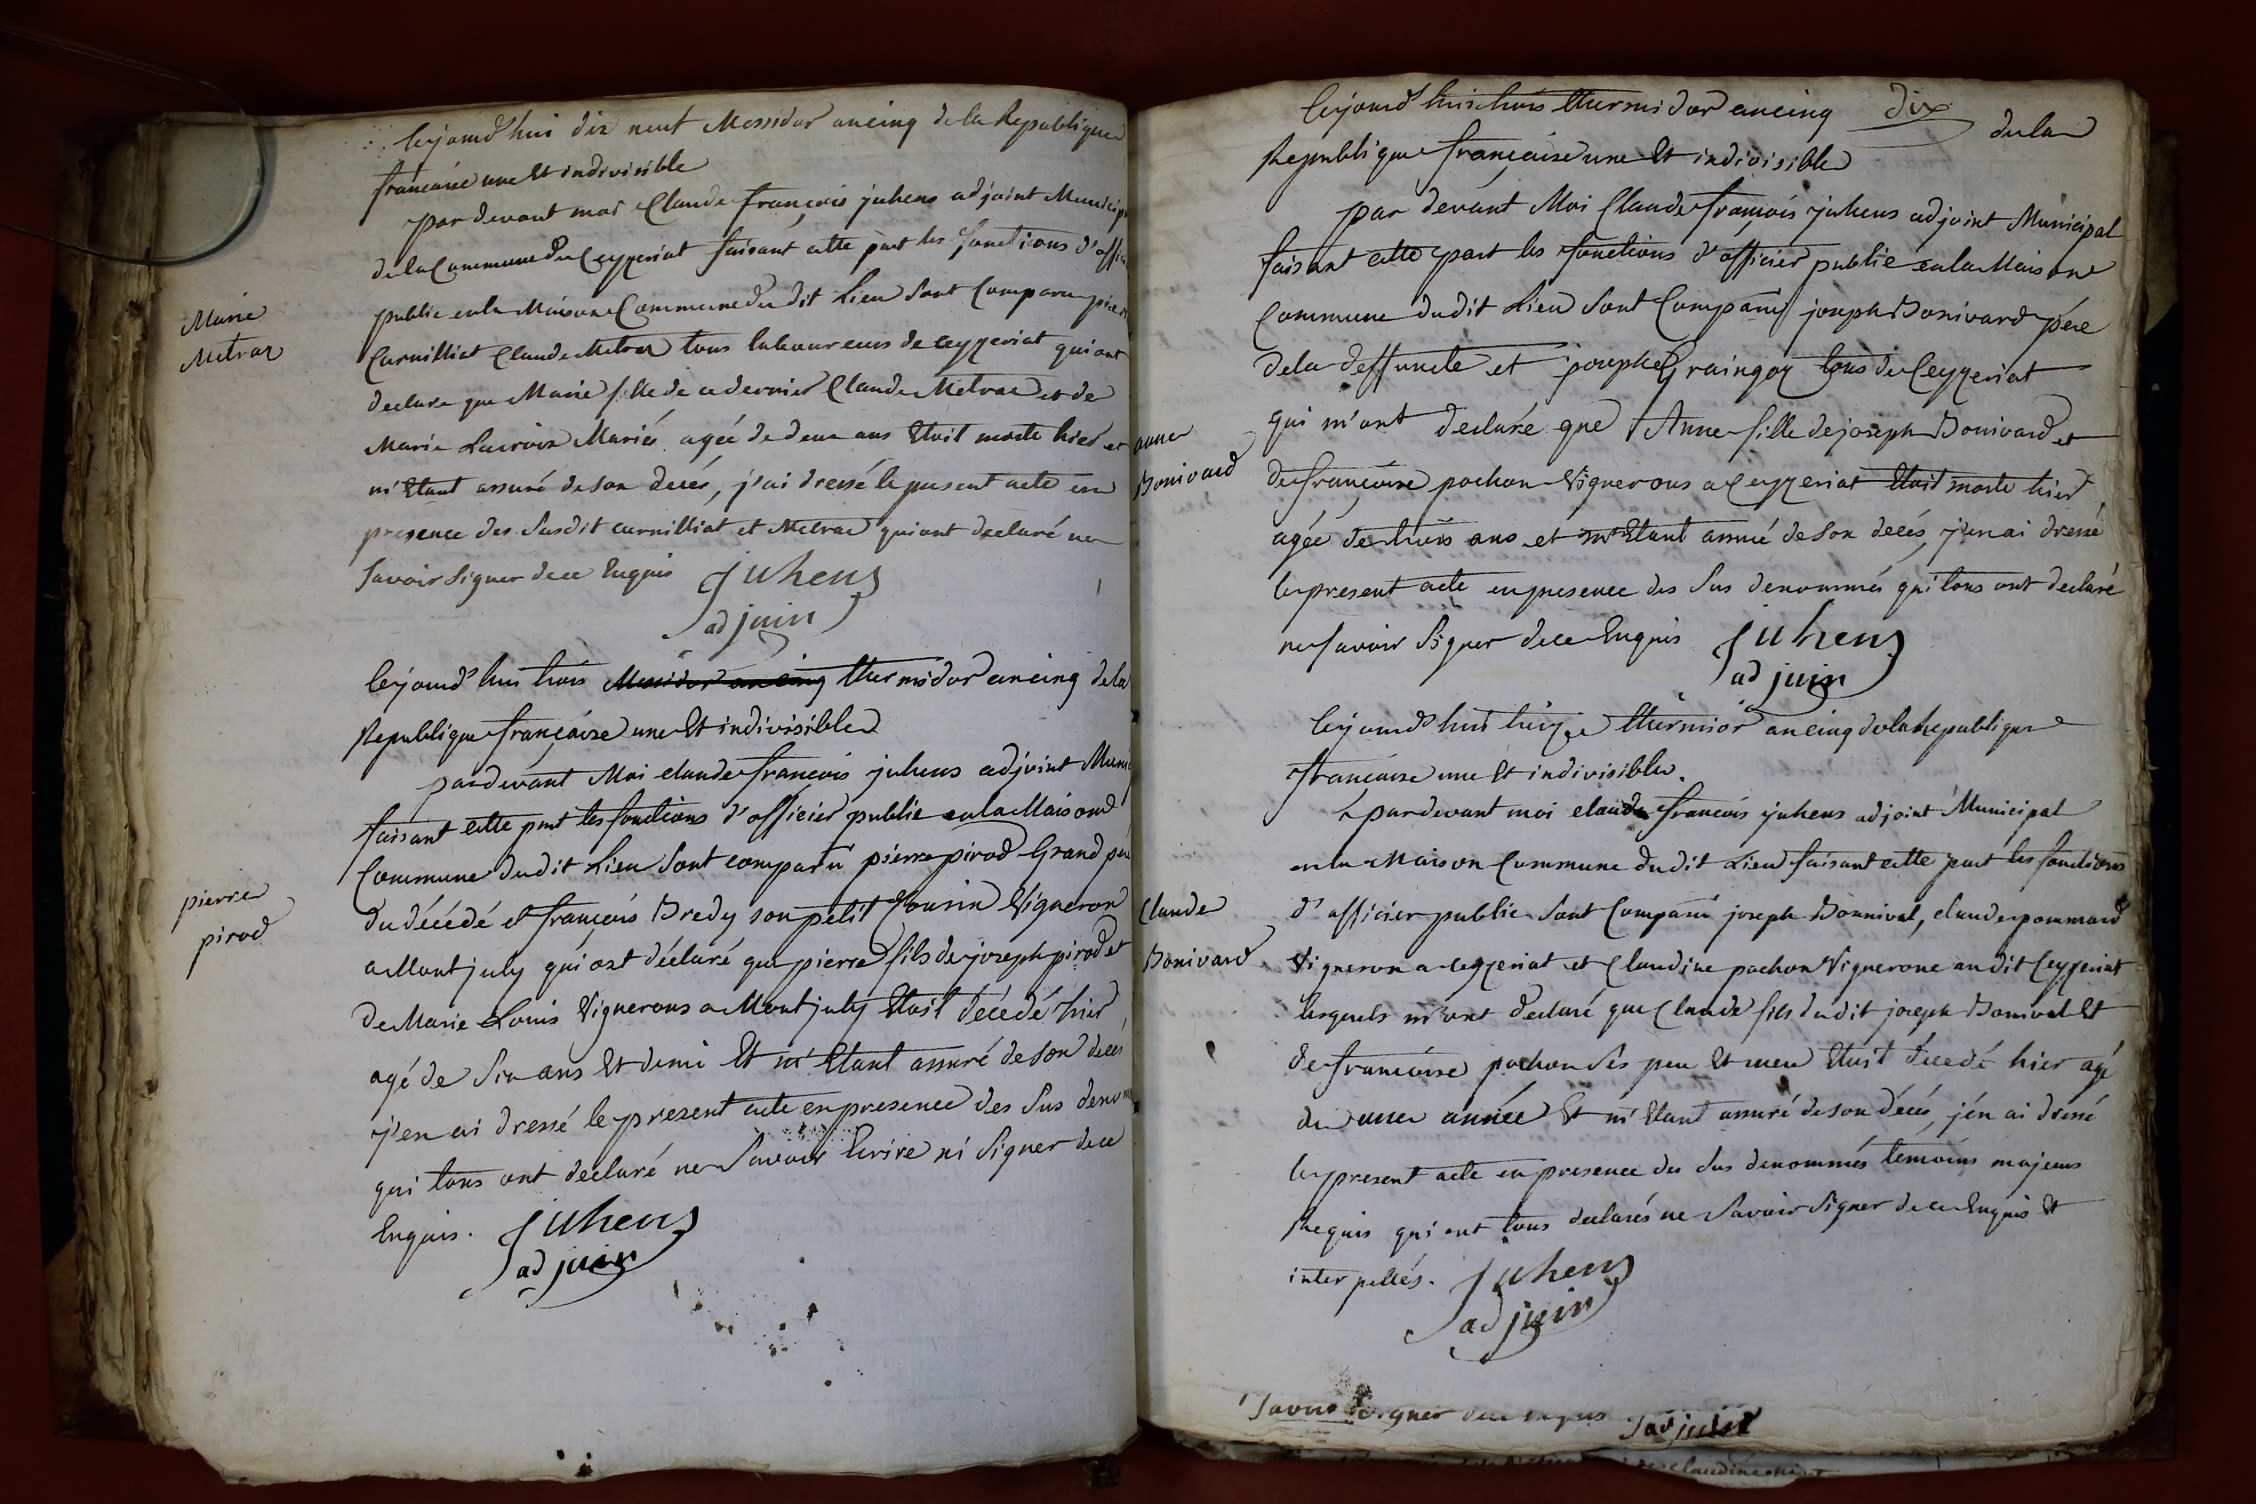 Cejourd'hui dix neuf Messidor an cinq de la Republique
francaise une Et indivisible
par devant moi Claude françois juhens adjoint Municip
de la Commune de Ceyzeriat faisant cette part les fonctions d'offici
public en la Maison Commune du dit Lieu Sont Comparu pierre
Carnilliat Claude Metraz tous laboureurs de ceyzeriat qui ont
declare que Marie fille de ce dernier Claude Metraz et de
Marie Lacroix Mariés agée de deux ans Etoit morte hier et
m'Etant assuré de son decés, j'ai dressé le present acte en
presence des Susdit carnilliat et Metraz qui ont declaré ne
Savoir Signer de ce Enquis Juhens
adjoin
Marie
Metraz
Cejourd'hui trois Messidor an cinq thermidor an cinq de la
Republique françaíse une Et indivisible
pardevant Moi claude françois juhens adjoint Muni
faisant cette part les fonctions d'officier public en la Maison
Commune dudit Lieu Sont comparu pierre pirod Grand père
du décédé et françois Bredy son petit Cousin Vigneron
a Montjuly qui ont déclaré que pierre fils de joseph pirod et
de Marie Louis Vignerons a Montjuly Etoit décédé hier
agé de Six ans Et demi Et m'Etant assuré de son deces
j'en ai dressé le present acte en presence des Sus denom
qui tous ont declaré ne Savoir Ecrire ni Signer de ce
Enquis. Juhens
adjoin
pierre
pirod
dix
Cejourd'hui trois thermidor an cinq de la
Republique française une Et indivisible
par devant Moi Claude françois juhens adjoint Municipal
faisant cette part les fonctions d'officier public en la Maison
Commune dudit Lieu Sont Comparu joseph Bonivard père
de la deffuncte et joseph Graingoy tous de Ceyzeriat
qui m'ont declaré que Anne fille de joseph Bonivard et
de françoise pochon Vignerons a Ceyzeriat Etoit morte hier
agée de trois ans et m'Etant assuré de son decés, j'en ai dressé
le present acte en presence des Sus denommés qui tous ont declaré
ne Savoir Signer de ce Enquis Juhens
adjoin
anne
Bonivard
Cejourd'hui treize thermior an cinq de la Republique
francaise une Et indivisible.
pardevant moi claude francois juhens adjoint Municipal
en la Maison Commune dudit Lieu faisant cette part les fonctions
d'officier public Sont Comparu joseph Bonnival, claude pommard
Vigneron a ceyzeriat et Claudine pochon Vignerone au dit Ceyzeriat
lesquels m'ont declaré que Claude fils dudit joseph Bonival Et
de francoise pochon Ses peu Et meu Etoit decedé hier agé
de une année Et m'Etant assuré de son décés, j'en ai dressé
le present acte en presence des Sus denommés temoins majeurs
Requis qui ont tous declarés ne Savoir Signer de ce Enquis Et
interpellés. Juhens
adjoin
Claude
Bonivard
Savoir Signer de ce enquis
adjoin